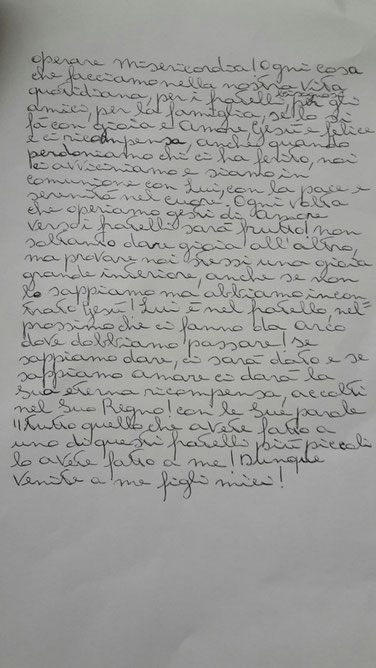 operare misericordia! Ogni cosa
che facciamo nella nostra vita
quotidiana, per i fratelli, per gli
amici, per la famiglia, se lo si
fa con gioia e amore Gesù è felice
e ci ricompensa, anche quando
perdoniamo chi ci ha ferito, noi
ci avviciniamo e siamo in
comunione con Lui, con la pace e
serenità nel cuore. Ogni volta
che operiamo gesti di amore
verso i fratelli sarà frutto! non
soltanto dare gioia all'altro,
ma provare noi stessi una gioia
grande interiore, anche se non
lo sappiamo ma abbiamo incon=
trato Gesù! Lui è nel fratello, nel
prossimo che ci fanno da arco
dove dobbiamo passare! Se
sappiamo dare, ci sarà dato e se
sappiamo amare ci darà la
Sua eterna ricompensa, accolti
nel Suo Regno! con le Sue parole
"tutto quello che avete fatto a
uno di questi fratelli più piccoli
lo avete fatto a me! Dunque
venite a me figli miei!